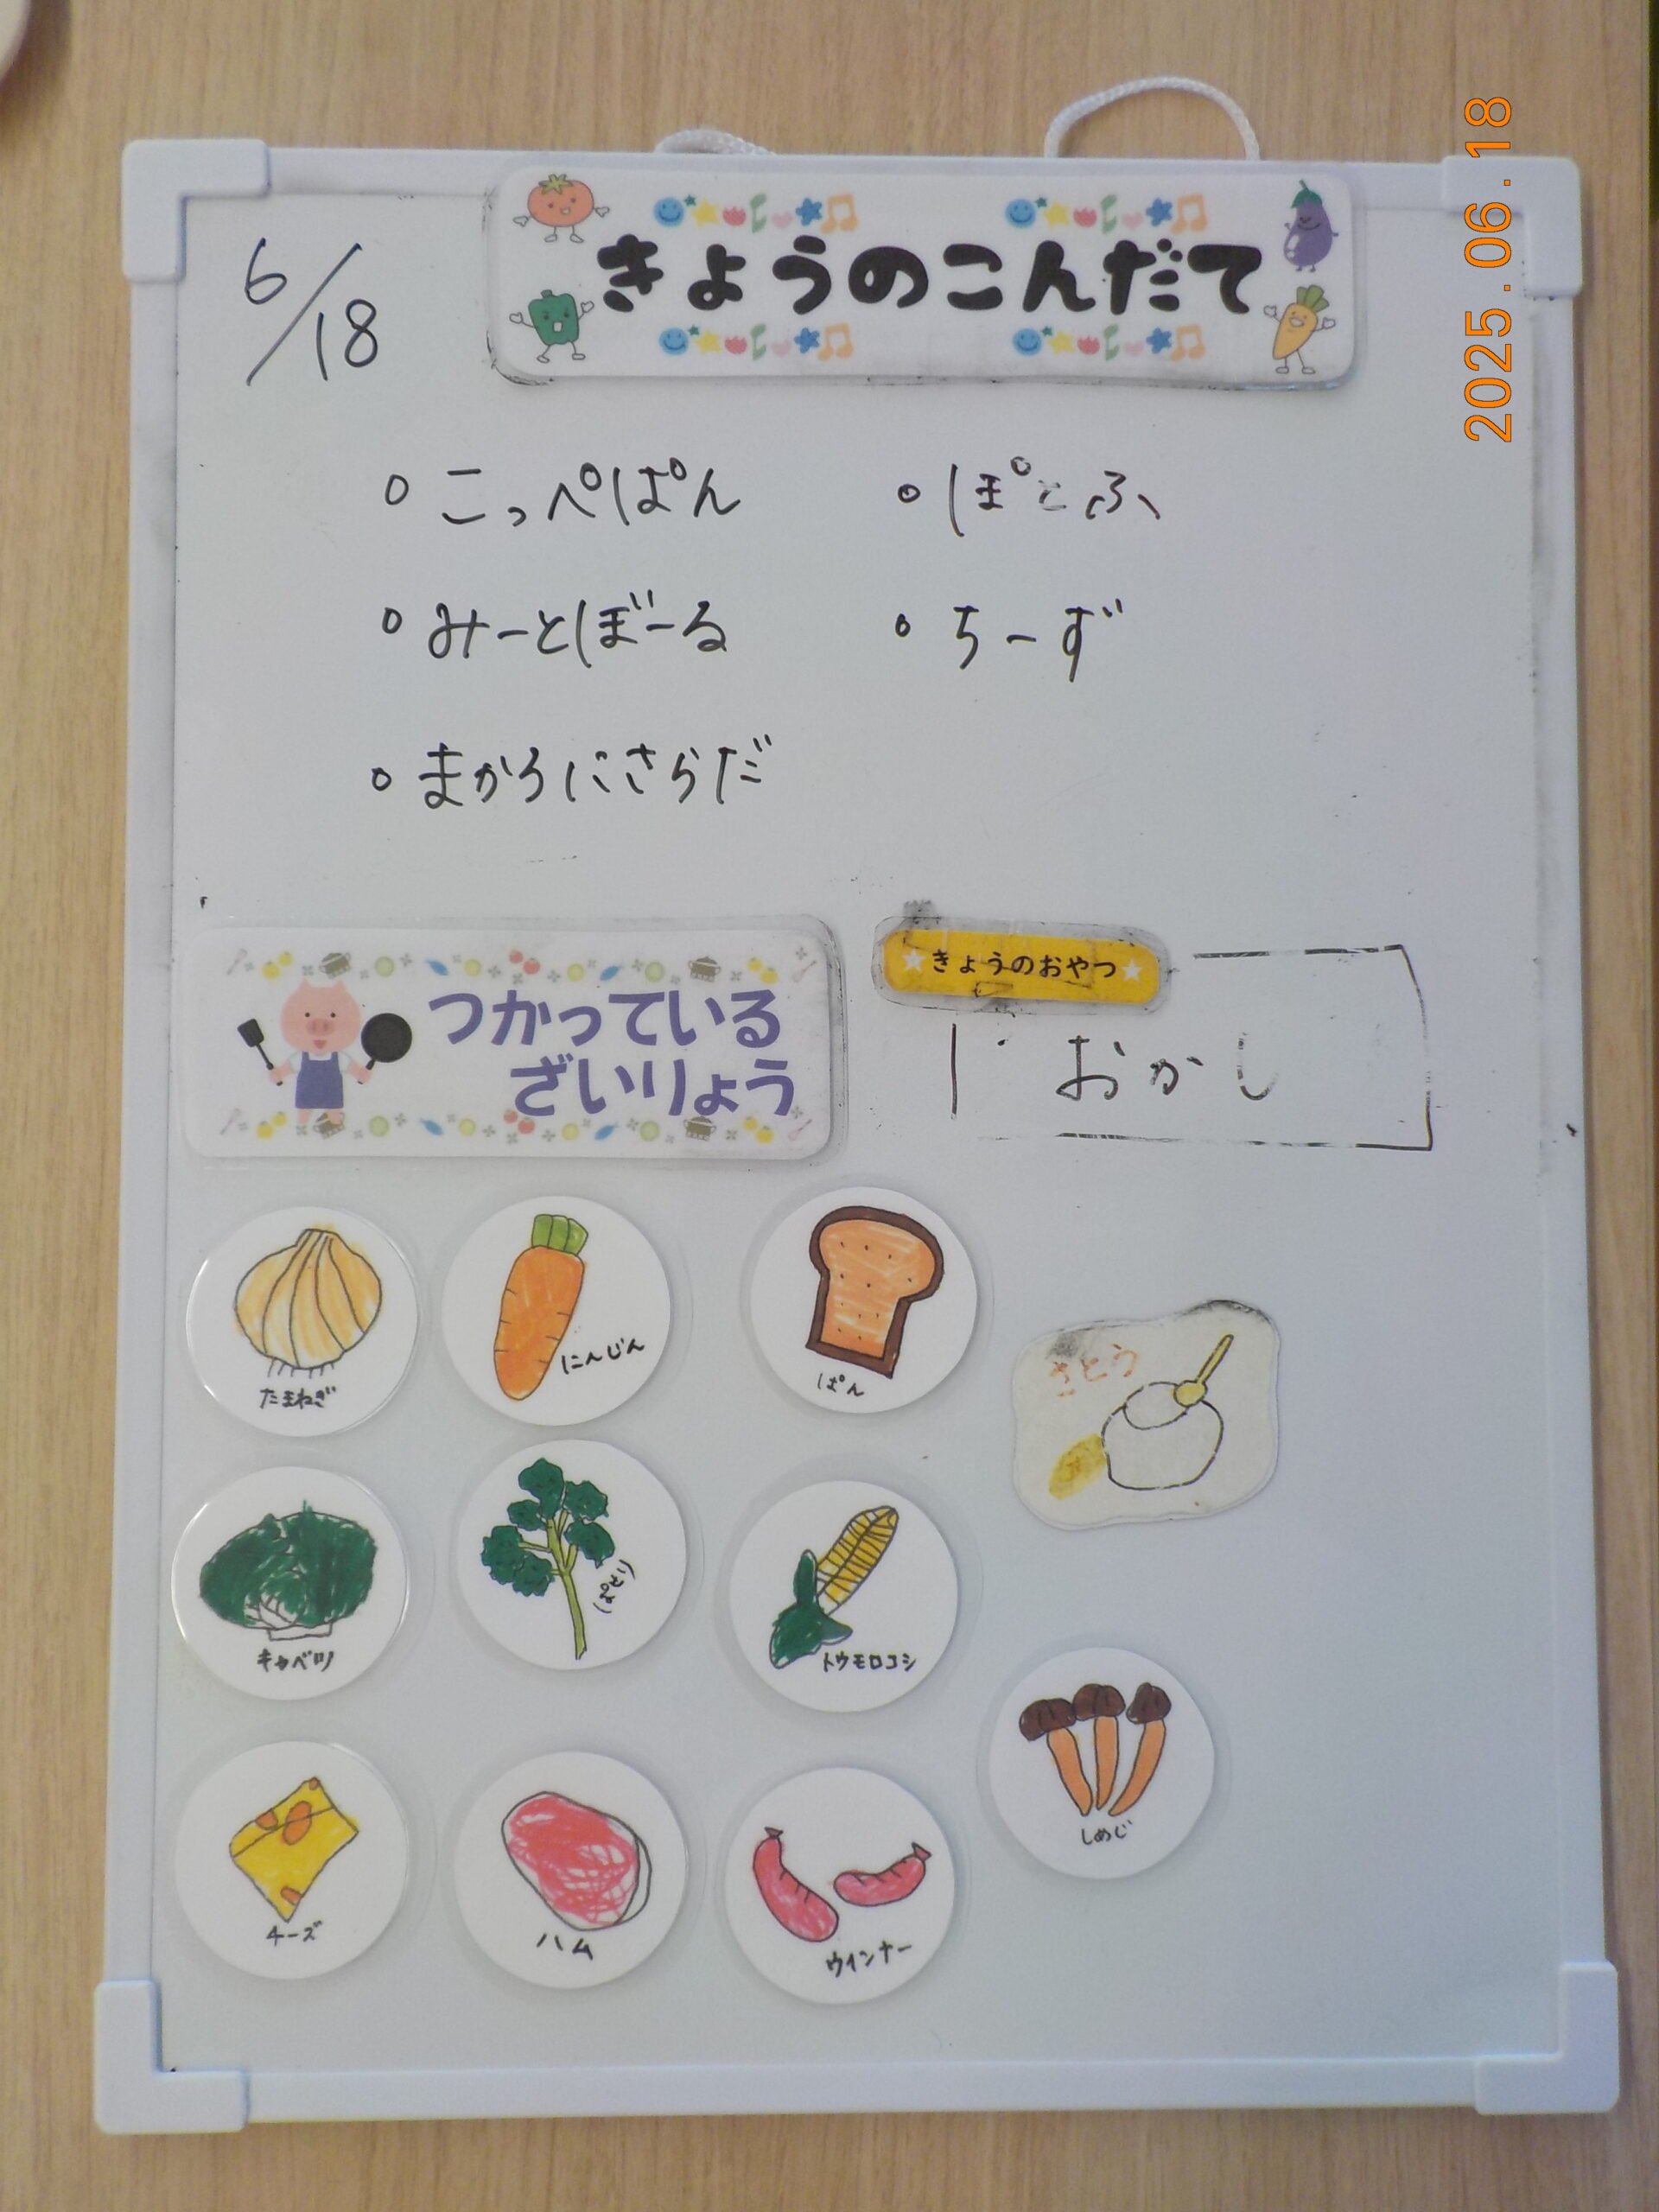 6/18
きょうのこんだて
2025.06.18
○ こっぺぱん
○ みーとぼーる
○ まかろにさらだ
○ ぽとふ
○ ちーず
つかっている
ざいりょう
きょうのおやつ
おかし
たまねぎ
にんじん
ぱん
さとう
キャベツ
トウモロコシ
しめじ
チーズ
ハム
ウインナー